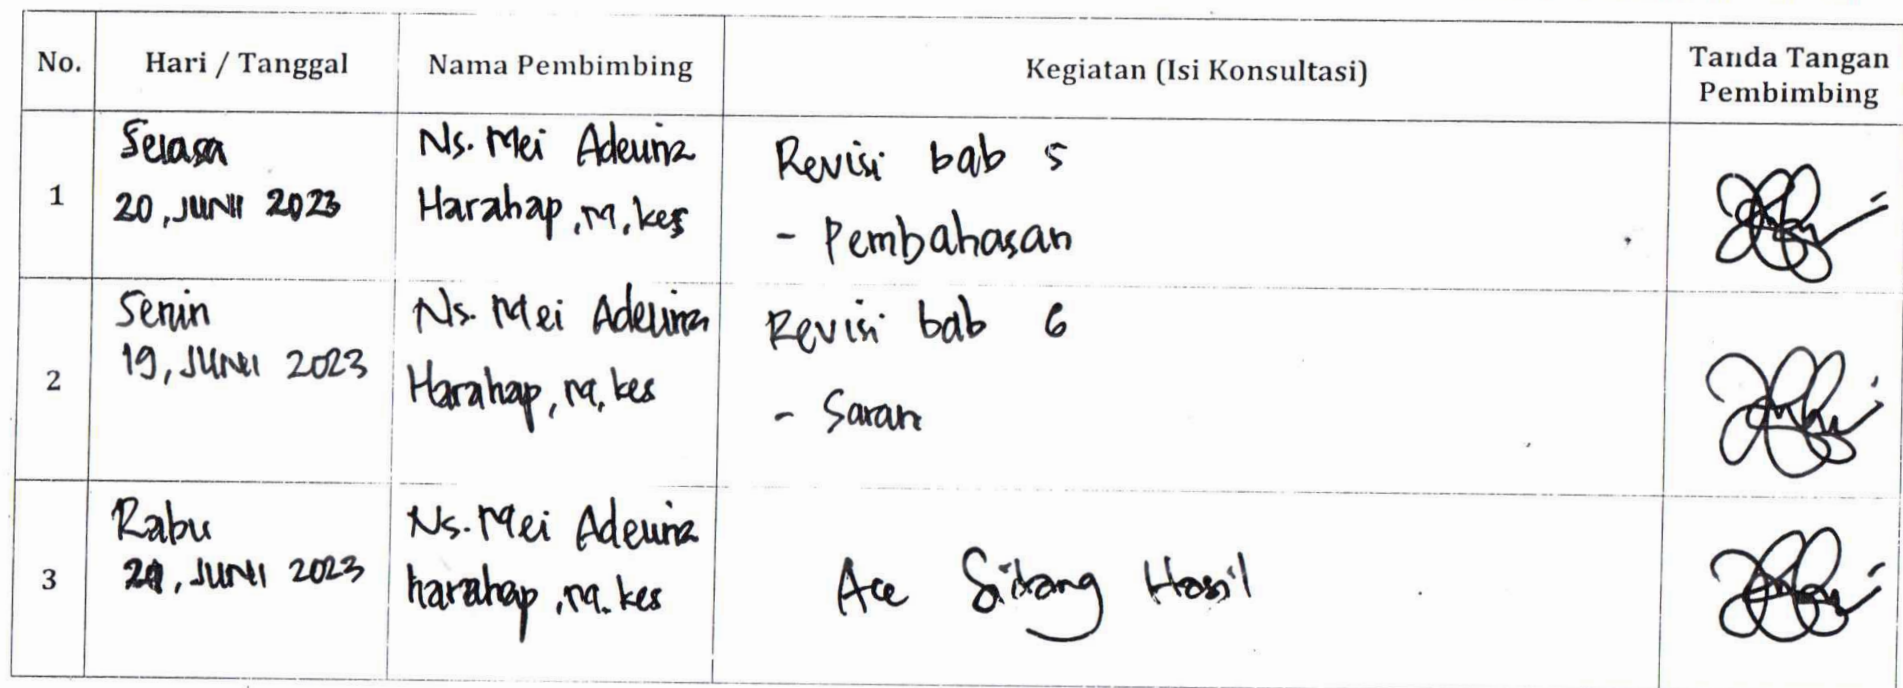 No. Hari / Tanggal Nama Pembimbing Kegiatan (Isi Konsultasi) Tanda Tangan Pembimbing
1
Selasa
20, JUNI 2023
Ns. Mei Adelina
Harahap, M. kes
Revisi bab 5
- Pembahasan
2
Senin
19, JUNI 2023
Ns. Mei Adelina
Harahap, M. kes
Revisi bab 6
- Saran
3
Rabu
21, JUNI 2023
Ns. Mei Adelina
harahap, M. kes
Acc Sidang Hasil